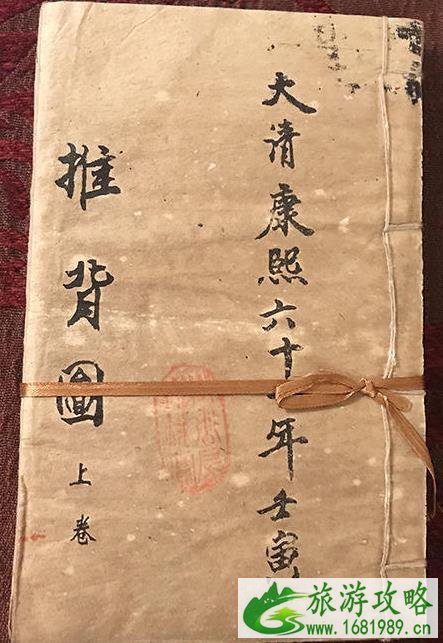 大清康熙六十一年壬寅
推背圖
上卷
旅游攻略
www.1681989.cn